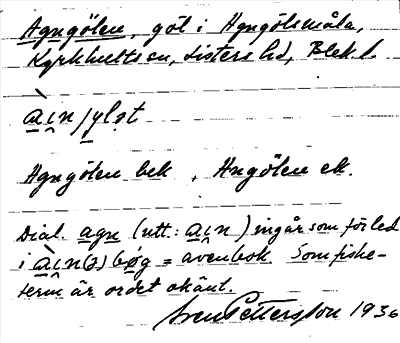 Agngölen, göl i Agngölsmåla,
Kyrkhults sn, Listers hd, Blek. l.
Agngölen bek., Angölen ek.
Dial. agn (utt.: ) ingår som förled
i = avenbok. Som fiske-
term är ordet okänt.
Sven Pettersson 1936